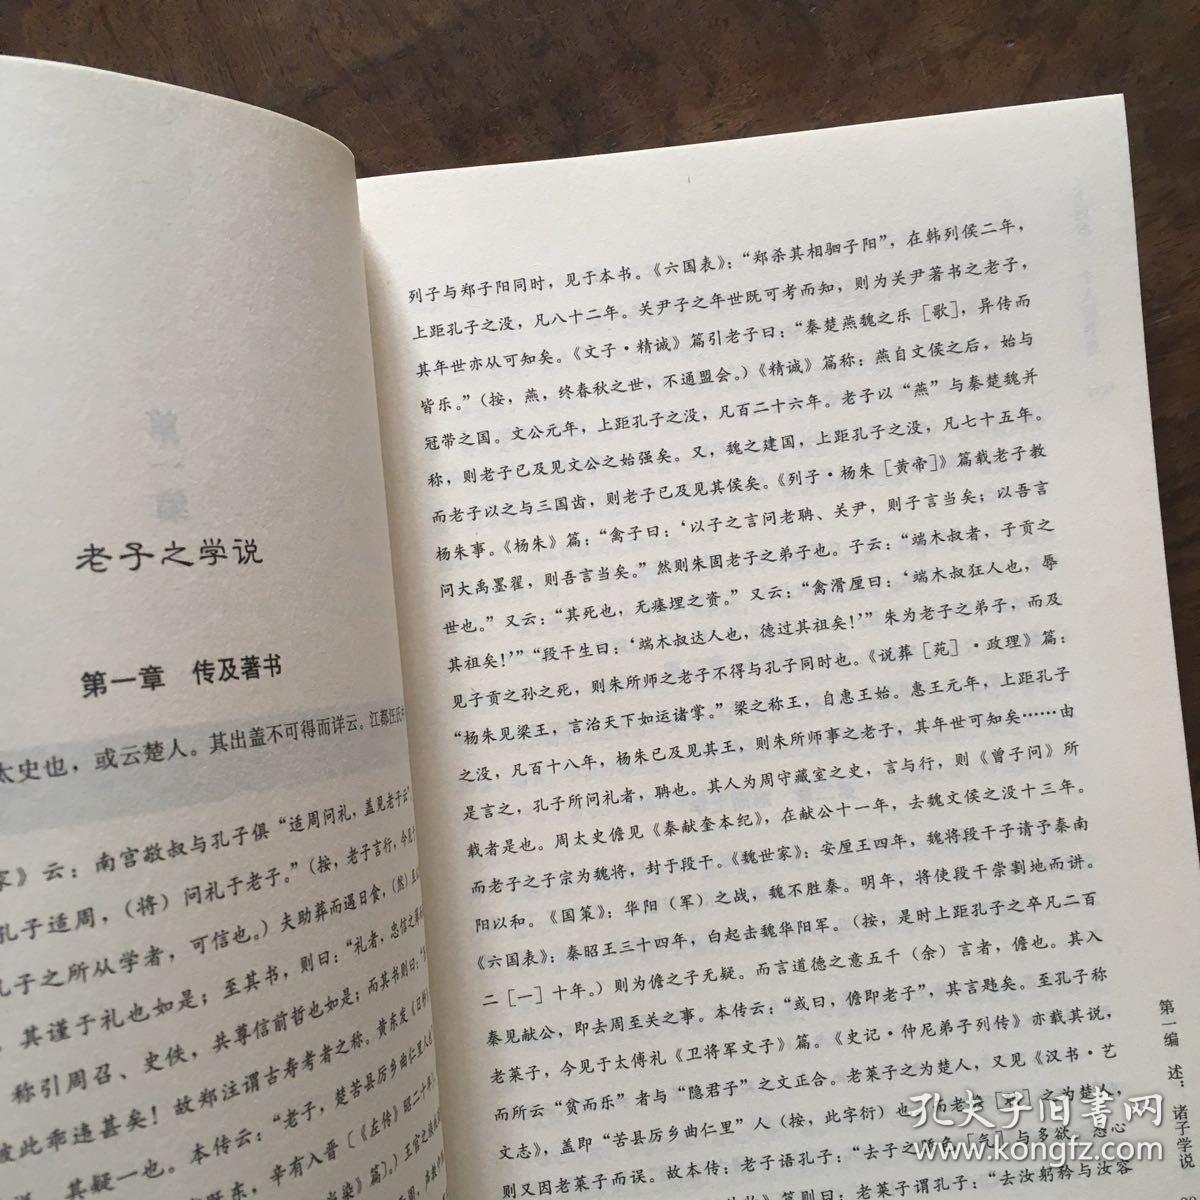 老子之学说
第一章 传及著书
太史也，或云楚人。其出盖不可得而详云。江都汪氏
家》云：南宫敬叔与孔子俱“适周问礼，盖见老子云”
孔子适周，（将）问礼于老子。”（按，老子言行，今见
孔子之所从学者，可信也。）夫助葬而遇日食，（然）
其谨于礼也如是；至其书，则曰：“礼者，忠信之薄
称引周召、史佚，共尊信前哲也如是；而其书则曰：
彼此乖违甚矣！故郑注谓古寿考者之称。黄东发《日
其疑一也。本传云：“老子，楚苦县厉乡曲仁里人也
既东，辛有入晋（《左传》昭二十年）
染》篇］。）王官之族
列子与郑子阳同时，见于本书。《六国表》：“郑杀其相驷子阳”，在韩列侯二年，
上距孔子之没，凡八十二年。关尹子之年世既可考而知，则为关尹著书之老子，
其年世亦从可知矣。《文子·精诚》篇引老子曰：“秦楚燕魏之乐［歌］，异传而
皆乐。”（按，燕，终春秋之世，不通盟会。）《精诚》篇称：燕自文侯之后，始与
冠带之国。文公元年，上距孔子之没，凡百二十六年。老子以“燕”与秦楚魏并
称，则老子已及见文公之始强矣。又，魏之建国，上距孔子之没，凡七十五年。
而老子以之与三国齿，则老子已及见其侯矣。《列子·杨朱［黄帝］》篇载老子教
杨朱事。《杨朱》篇：“禽子曰：‘以子之言问老聃、关尹，则子言当矣；以吾言
问大禹墨翟，则吾言当矣。”然则朱固老子之弟子也。子云：“端木叔者，子贡之
世也。”又云：“其死也，无瘗埋之资。”又云：“禽滑厘曰：‘端木叔狂人也，辱
其祖矣！’”“段干生曰：‘端木叔达人也，德过其祖矣！’”朱为老子之弟子，而及
见子贡之孙之死，则朱所师之老子不得与孔子同时也。《说葬［苑］·政理》篇：
“杨朱见梁王，言治天下如运诸掌。”梁之称王，自惠王始。惠王元年，上距孔子
之没，凡百十八年，杨朱已及见其王，则朱所师事之老子，其年世可知矣……由
是言之，孔子所问礼者，聃也。其人为周守藏室之史，言与行，则《曾子问》所
载者是也。周太史儋见《秦献奎本纪》，在献公十一年，去魏文侯之没十三年。
而老子之子宗为魏将，封于段干。《魏世家》：安厘王四年，魏将段干子请予秦南
阳以和。《国策》：华阳（军）之战，魏不胜秦。明年，将使段干崇割地而讲。
《六国表》：秦昭王三十四年，白起击魏华阳军。（按，是时上距孔子之卒凡二百
二［一］十年。）则为儋之子无疑。而言道德之意五千（余）言者，儋也。其入
秦见献公，即去周至关之事。本传云：“或曰，儋即老子”，其言韪矣。至孔子称
老莱子，今见于太傅礼《卫将军文子》篇。《史记·仲尼弟子列传》亦载其说，
而所云“贫而乐”者与“隐君子”之文正合。老莱子之为楚人，又见《汉书·艺
文志》，盖即“苦县厉乡曲仁里”人（按，此字衍）也
则又因老莱子而误。故本传：老子语孔子：“去子之
篇则曰：老莱子谓孔子：“去汝躬矜与汝容
第一编 述：诸子学说
孔夫子旧书网
www.kongfz.com